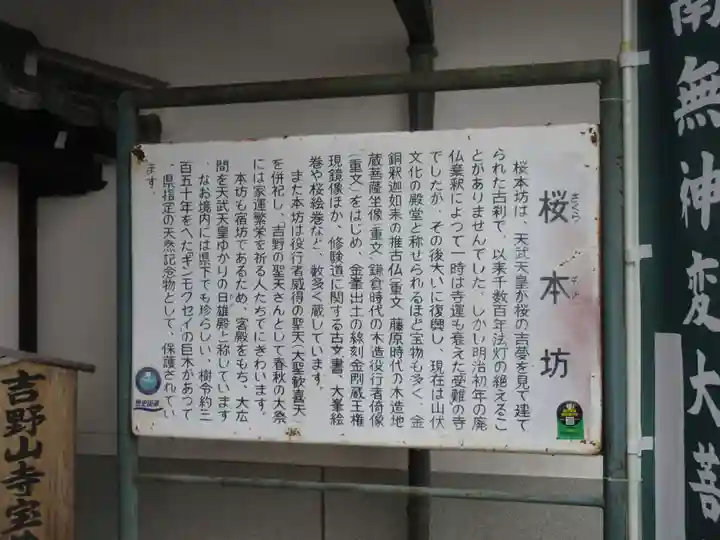 南無神変大菩
桜本坊
桜本坊は、天武天皇が桜の吉夢を見て建て
られた古刹で、以来千数百年法灯の絶えるこ
とがありませんでした。しかし明治初年の廃
仏棄釈によつて一時は寺運も衰えた受難の寺
でしたが、その後大いに復興し、現在は山伏
文化の殿堂と称せられるほど宝物も多く、金
銅釈迦如来の推古仏(重文、藤原時代の木造地
蔵菩薩坐像(重文)鎌倉時代の木造役行者倚像
(重文)をはじめ、金峯出土の線刻金剛蔵王権
現鏡像ほか、修験道に関する古文書、大峯絵
巻や桜絵巻など、数多く蔵しています。
また本坊は役行者感得の聖天(大聖歓喜天)
を併祀し、「吉野の聖天さんとして春秋の大祭
には家運繁栄を祈る人たちでにぎわいます。
本坊も宿坊であるため、客殿をもち、大広
間を天武天皇ゆかりの日雄殿と称しています
なお境内には県下でも珍らしい、樹令約三
百五十年をへた「ギンモクセイの巨木があって
、県指定の天然記念物として、保護されてい
ます。
歴史街道
吉野山寺宝